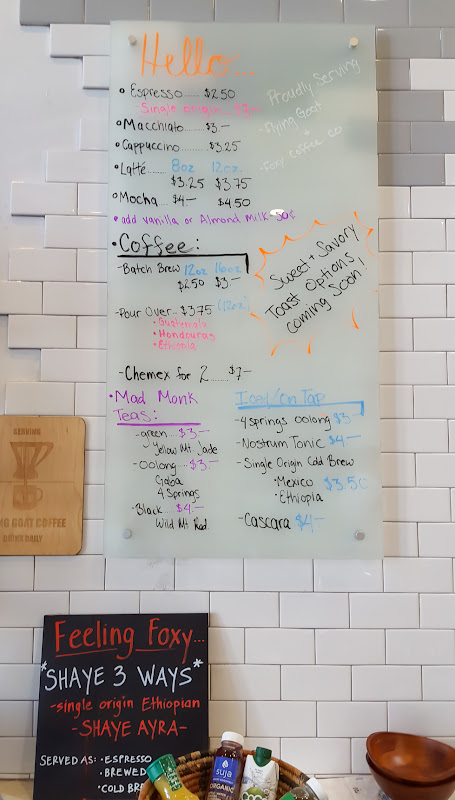 Hello...
Espresso...... $2.50
-Single origin... $3-
Macchiato... $3-
Cappuccino ...... $3.25
Latté....... 8oz 12oz
$3.25 $3.75
Mocha.... $4- $4.50
add vanilla or Almond Milk 50¢
Proudly Serving
-Flying Goat
+
-Foxy coffee co
Coffee:
-Batch Brew 12oz 16oz
$2.50 $3-
-Pour Over... $3.75 (12oz)
Guatemala
Honduras
Ethiopia
-Chemex for 2 ..... $7-
Sweet + Savory
Toast Options,
coming soon!
Mad Monk
Teas:
-green.... $3-
Yellow Mt Jade
-Oolong.... $3-
Gaba
4 Springs
-Black..... $4-
Wild Mt Red
Iced/On Tap
-4 springs oolong $3
-Nostrum Tonic $4-
-Single Origin Cold Brew
Mexico $3.50
Ethiopia
-Cascara $4-
SERVING
NG GOAT COFFEE
DRINK DAILY
Feeling Foxy...
*SHAYE 3 WAYS*
-single origin Ethiopian
-SHAYE AYRA-
SERVED AS: • ESPRESSO
• BREWED
• COLD B
suja
ORGANIC